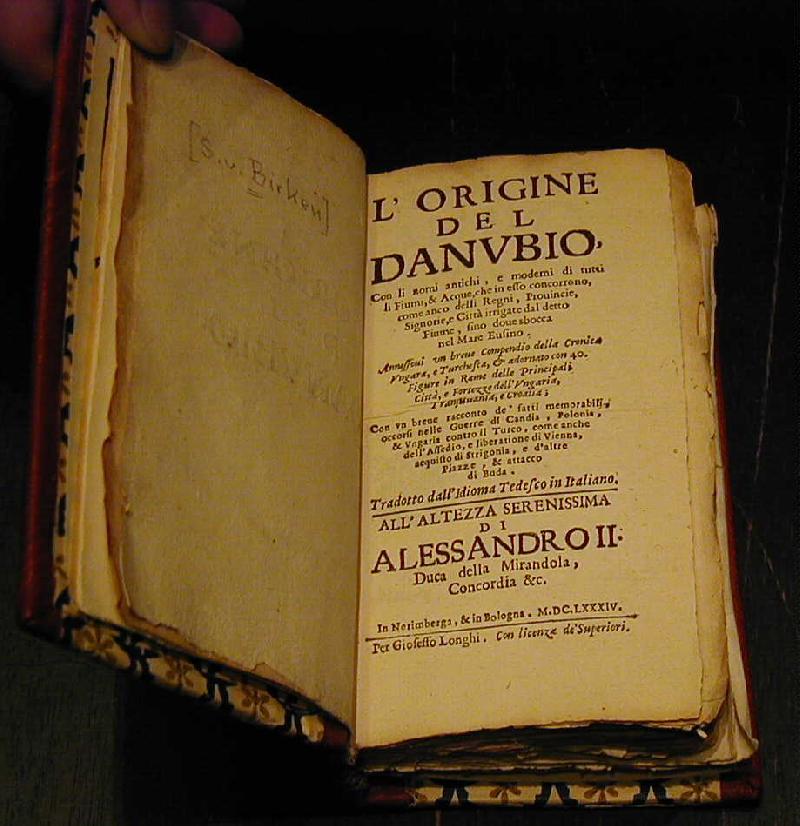 [S. v. Birken]
L' ORIGINE
DEL
DANVBIO,
Con li nomi antichi, e moderni di tutti
li Fiumi, & Acque, che in esso concorrono,
come anco delli Regni, Prouincie,
Signorie, e Città irrigate dal detto
Fiume, sino doue sbocca
nel Mare Eusino.
Annessoui vn breue Compendio della Cronica
Vngara, e Turchesca, & adornato con 40.
Figure in Rame delle Principali
Città, e Fortezze dell' Vngaria,
Transiluania, e Croatia;
Con vn breue racconto de' fatti memorabili,
occorsi nelle Guerre di Candia, Polonia,
& Vngaria contro il Turco, come anche
dell' Assedio, e liberatione di Vienna,
acquisto di Strigonia, e d'altre
Piazze, & attacco
di Buda.
Tradotto dall' Idioma Tedesco in Italiano.
ALL' ALTEZZA SERENISSIMA
DI
ALESSANDRO II.
Duca della Mirandola,
Concordia &c.
In Norimberga, & in Bologna. M.DC.LXXXIV.
Per Gioseffo Longhi. Con licenza de' Superiori.